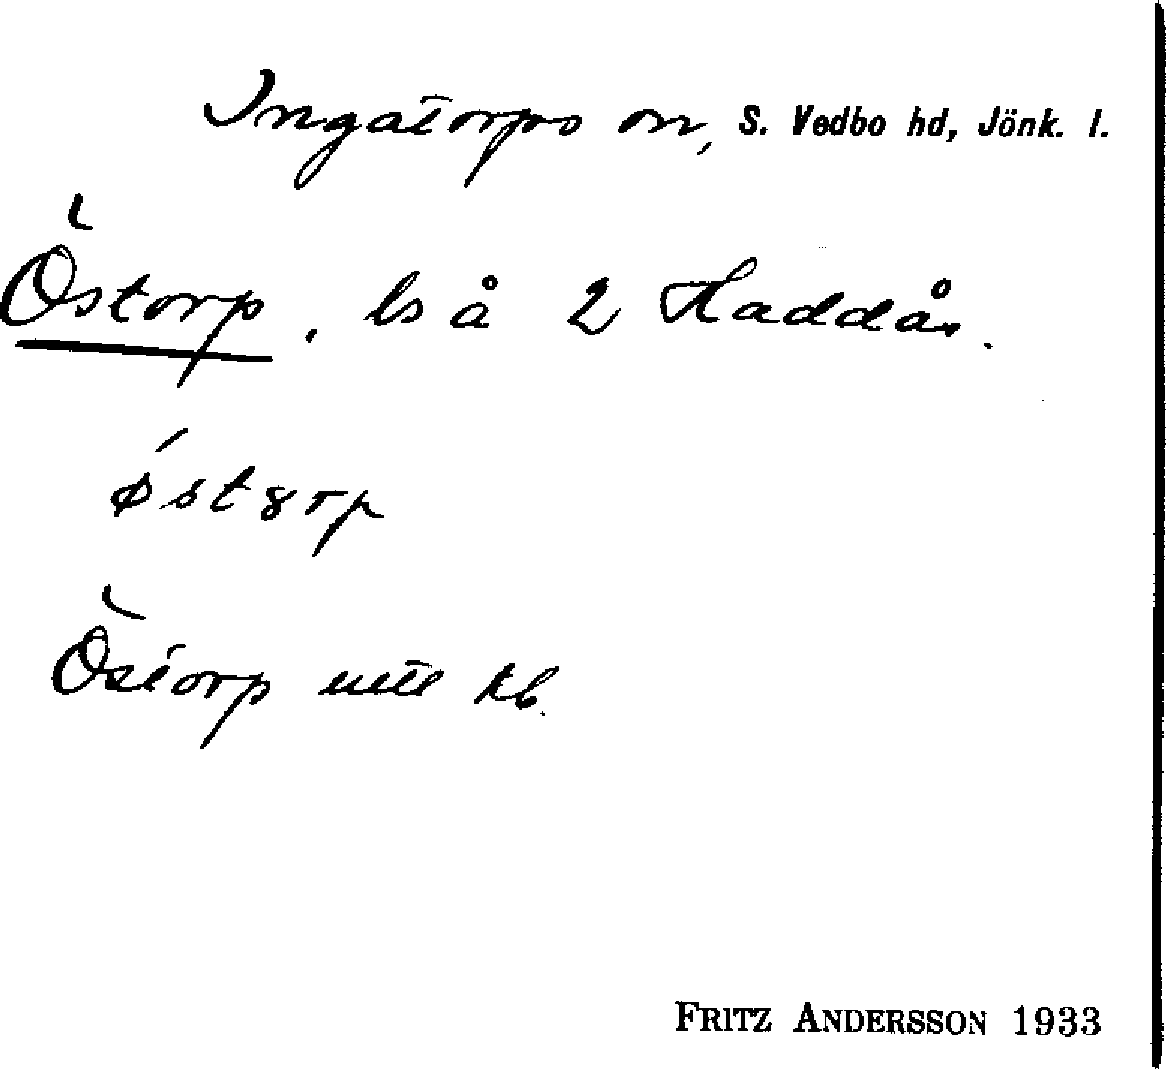 Ingatorps sn, S. Vedbo hd, Jönk. l.
Östorp, ls å 2 Haddås.
östȣrp
Östorp utt kb.
FRITZ ANDERSSON 1933